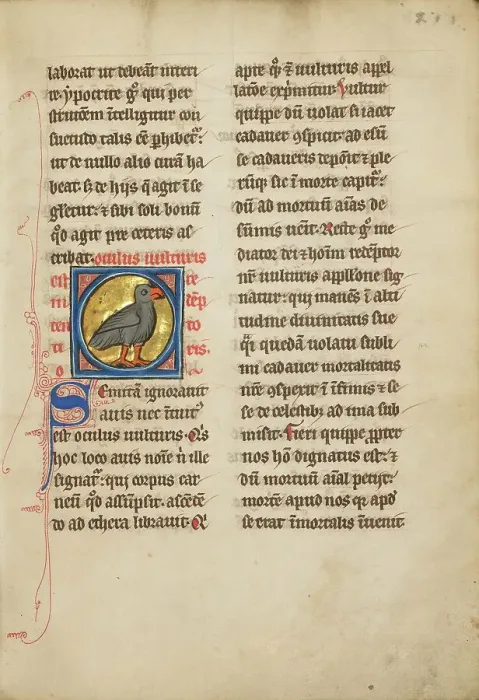 laborat ut debeāt interi
re. ypocrite g̃ qui per
strutōem ītelligitur con
suetudo talis cē phibet᷑:
ut de nullo alio curā ha
beat. sꝫ de hijs q̄ agit ī se
gl̃etur. ⁊ sibi soli bonū
qd̛ agit pre ceteris as
cribat. oculus uulturis
Semitā ignorauit
auis nec ītuit᷑
est oculus uulturis. Qis
hoc loco auis noīe n̄ ille
signat᷑: qui corpus car
neū qd̛ assūpsit. ascēdē
do ad ethera librauit. Q
apte qꝫ ⁊ uulturis appel
latōe exp̄mitur. Vultur
quippe dū uolat si iacet
cadauer ꝯspicit. ad esū
se cadaueris depōit. ⁊ ple
rūqꝫ sic ī morte capit᷑:
dū ad mortuū aīas de
sūmis uēit. Recte g̃ me
diator dei ⁊ hoīm redēptor
nr̄ uulturis appllōne sig
natur: qui manēs ī alti
tudine diuinitatis sue
q̄i quedā uolatu subli
mi cadauer mortalitatis
nr̄e ꝯsperit ī īfimis ⁊ se
se de celestibꝫ ad ima sub
misit. Fieri quippe ꝓpter
nos hō dignatus est. ⁊
dū mortuū aīal petijt:
mortē apud nos q̛ apd̛
se erat īmortalis īuenit.